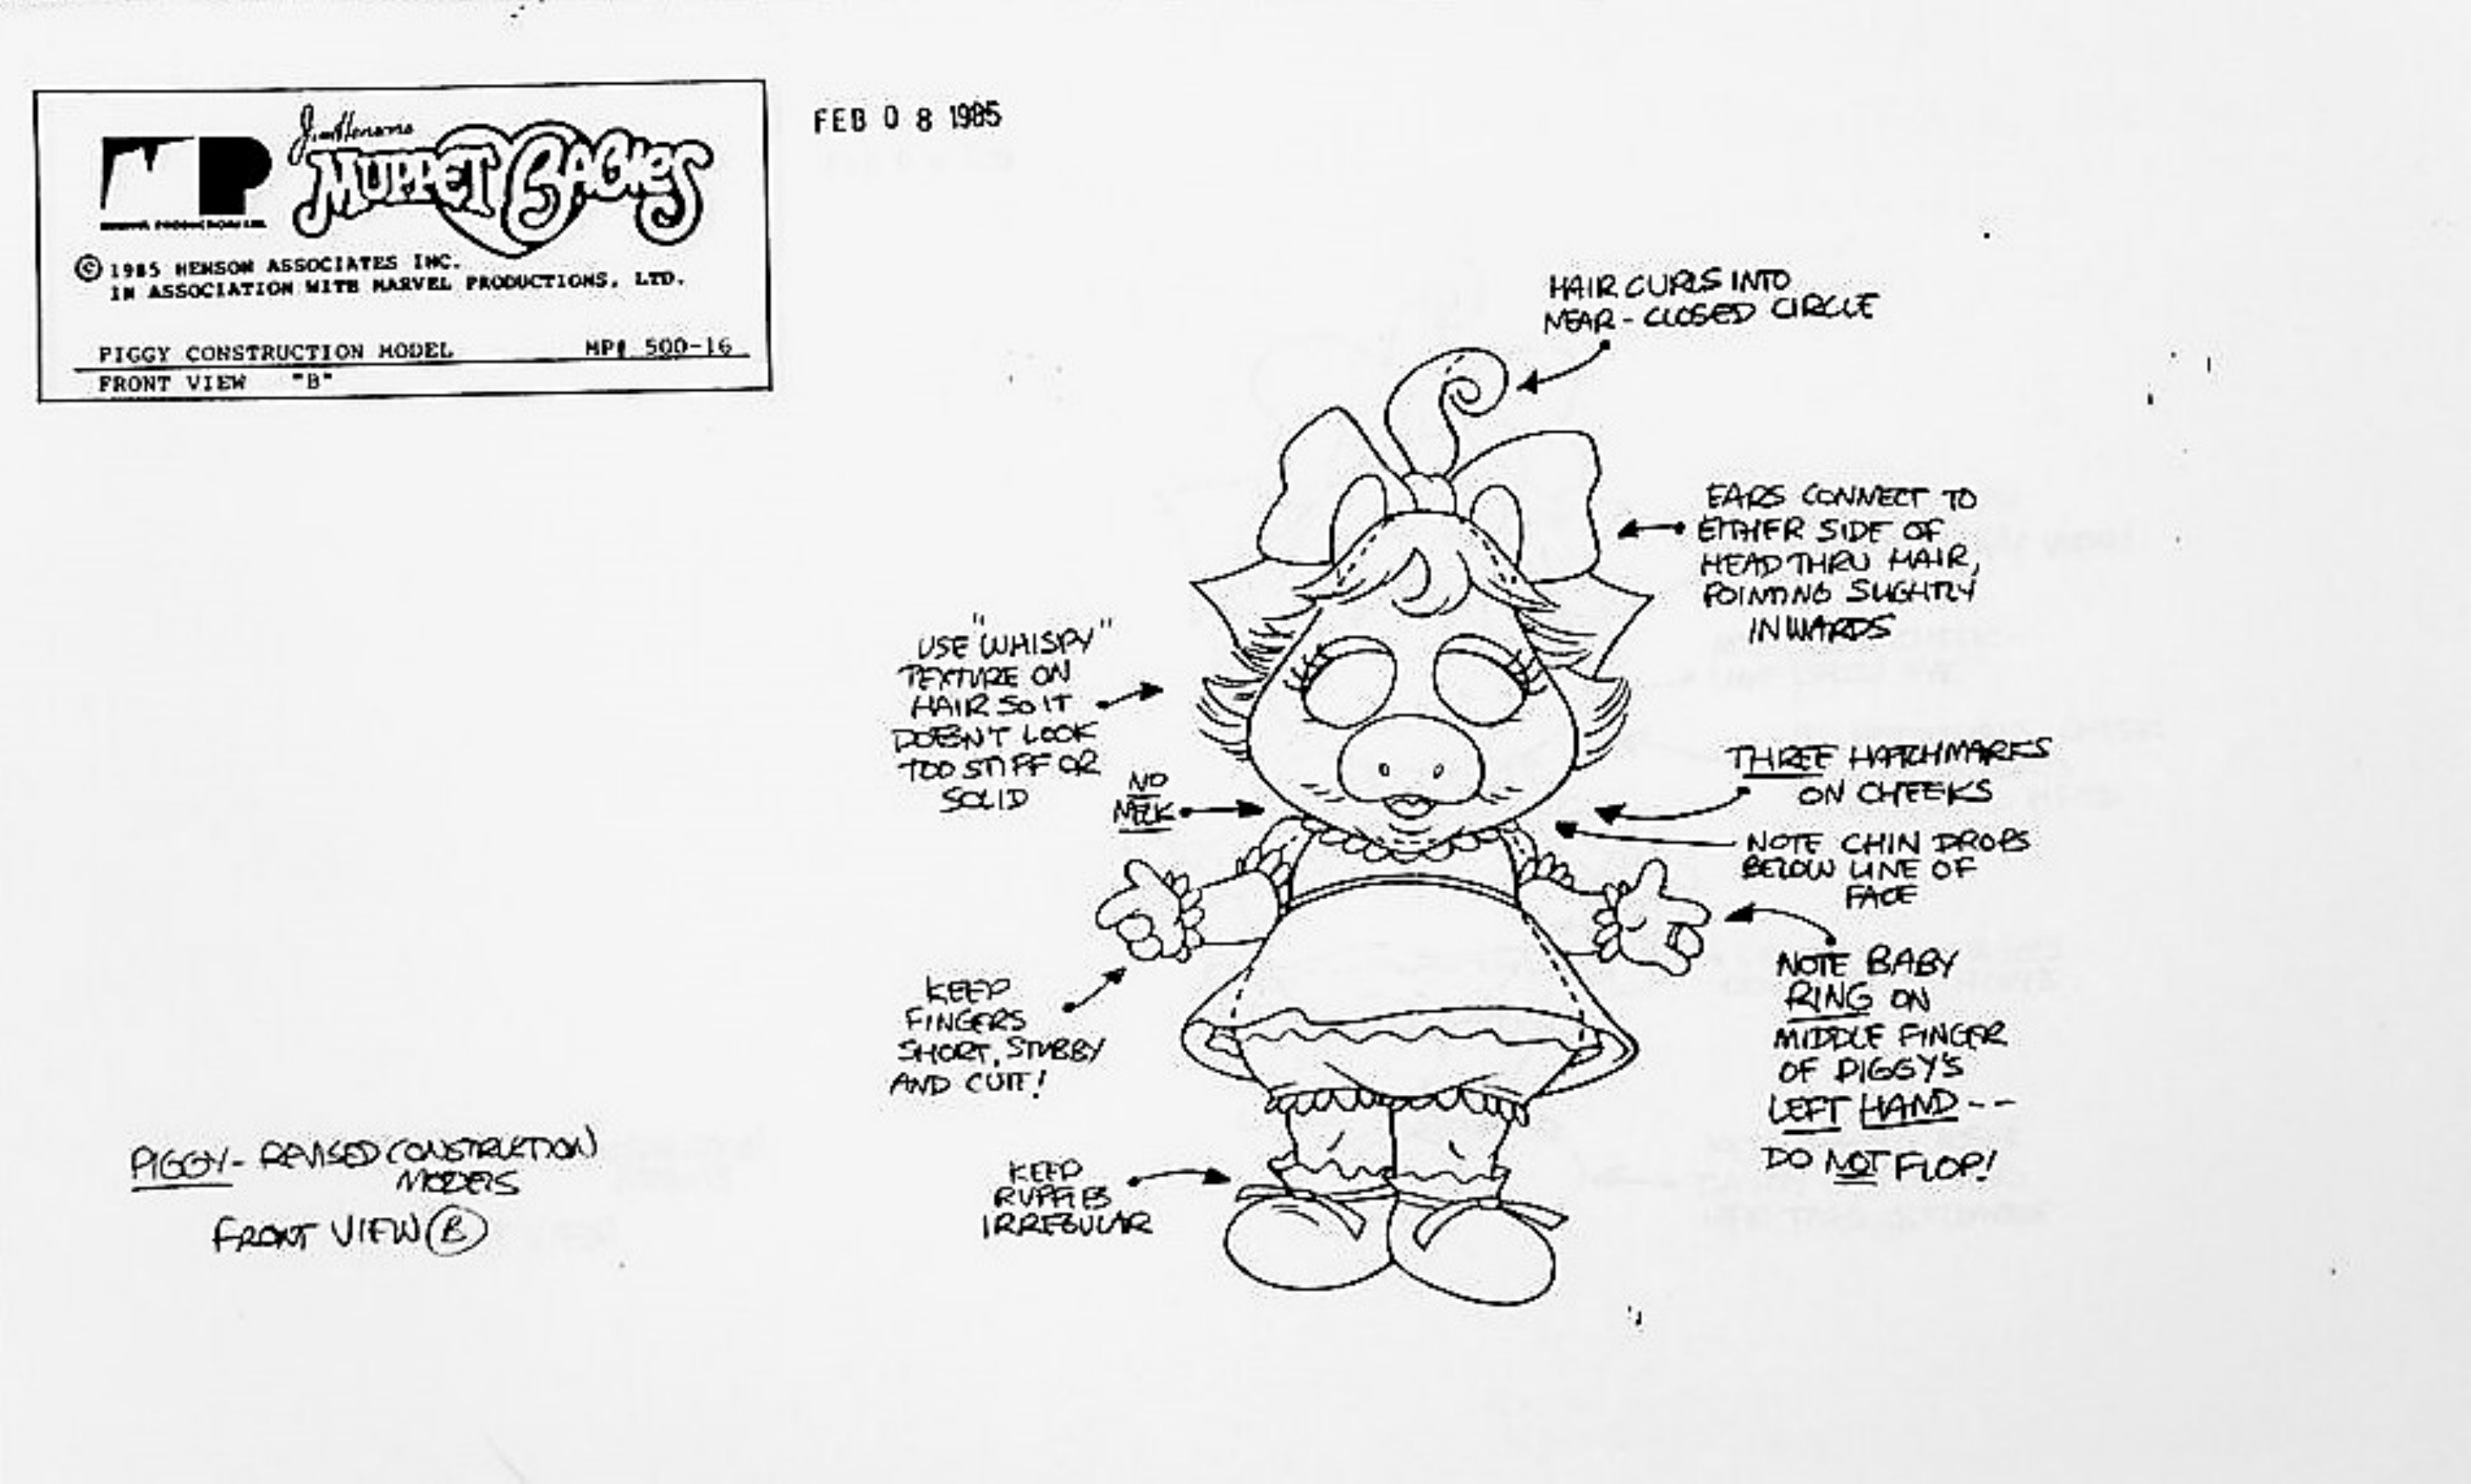 Jim Henson's
MUPPET BABIES
MP
MARVEL PRODUCTIONS LTD.
© 1985 HENSON ASSOCIATES INC.
IN ASSOCIATION WITH MARVEL PRODUCTIONS, LTD.
PIGGY CONSTRUCTION MODEL MP# 500-16
FRONT VIEW "B"
FEB 08 1985
HAIR CURLS INTO
NEAR-CLOSED CIRCLE
EARS CONNECT TO
EITHER SIDE OF
HEAD THRU HAIR,
POINTING SLIGHTLY
INWARDS
USE "WHISPY"
TEXTURE ON
HAIR SO IT
DOESN'T LOOK
TOO STIFF OR
SOLID
NO
THREE HATCHMARKS
ON CHEEKS
NOTE CHIN DROPS
BELOW LINE OF
FACE
NOTE BABY
RING ON
MIDDLE FINGER
OF PIGGY'S
LEFT HAND--
DO NOT FLOP!
KEEP
FINGERS
SHORT, STUBBY
AND CUTE!
KEEP
RUFFLES
IRREGULAR
PIGGY- REVISED CONSTRUCTION
MODELS
FRONT VIEW B